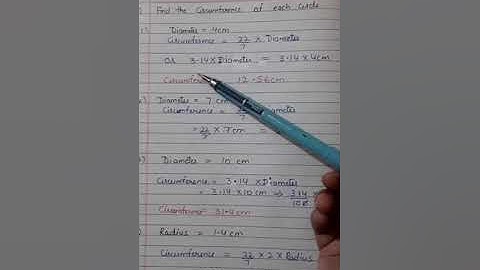 Find the Circumference of each circle
Diameter = 4cm
Circumference = 22/7 × Diameter
OR 3.14 × Diameter = 3.14 × 4cm
12.56cm
Diameter = 7 cm
Circumference
= 22/7 × 7 cm =
Diameter = 10 cm
Circumference = 3.14 × Diameter
= 3.14 × 10 cm ⇒ 3.14 ×
Circumference 31.4 cm
Radius = 1.4 cm
Circumference = 22/7 × 2 × Radius